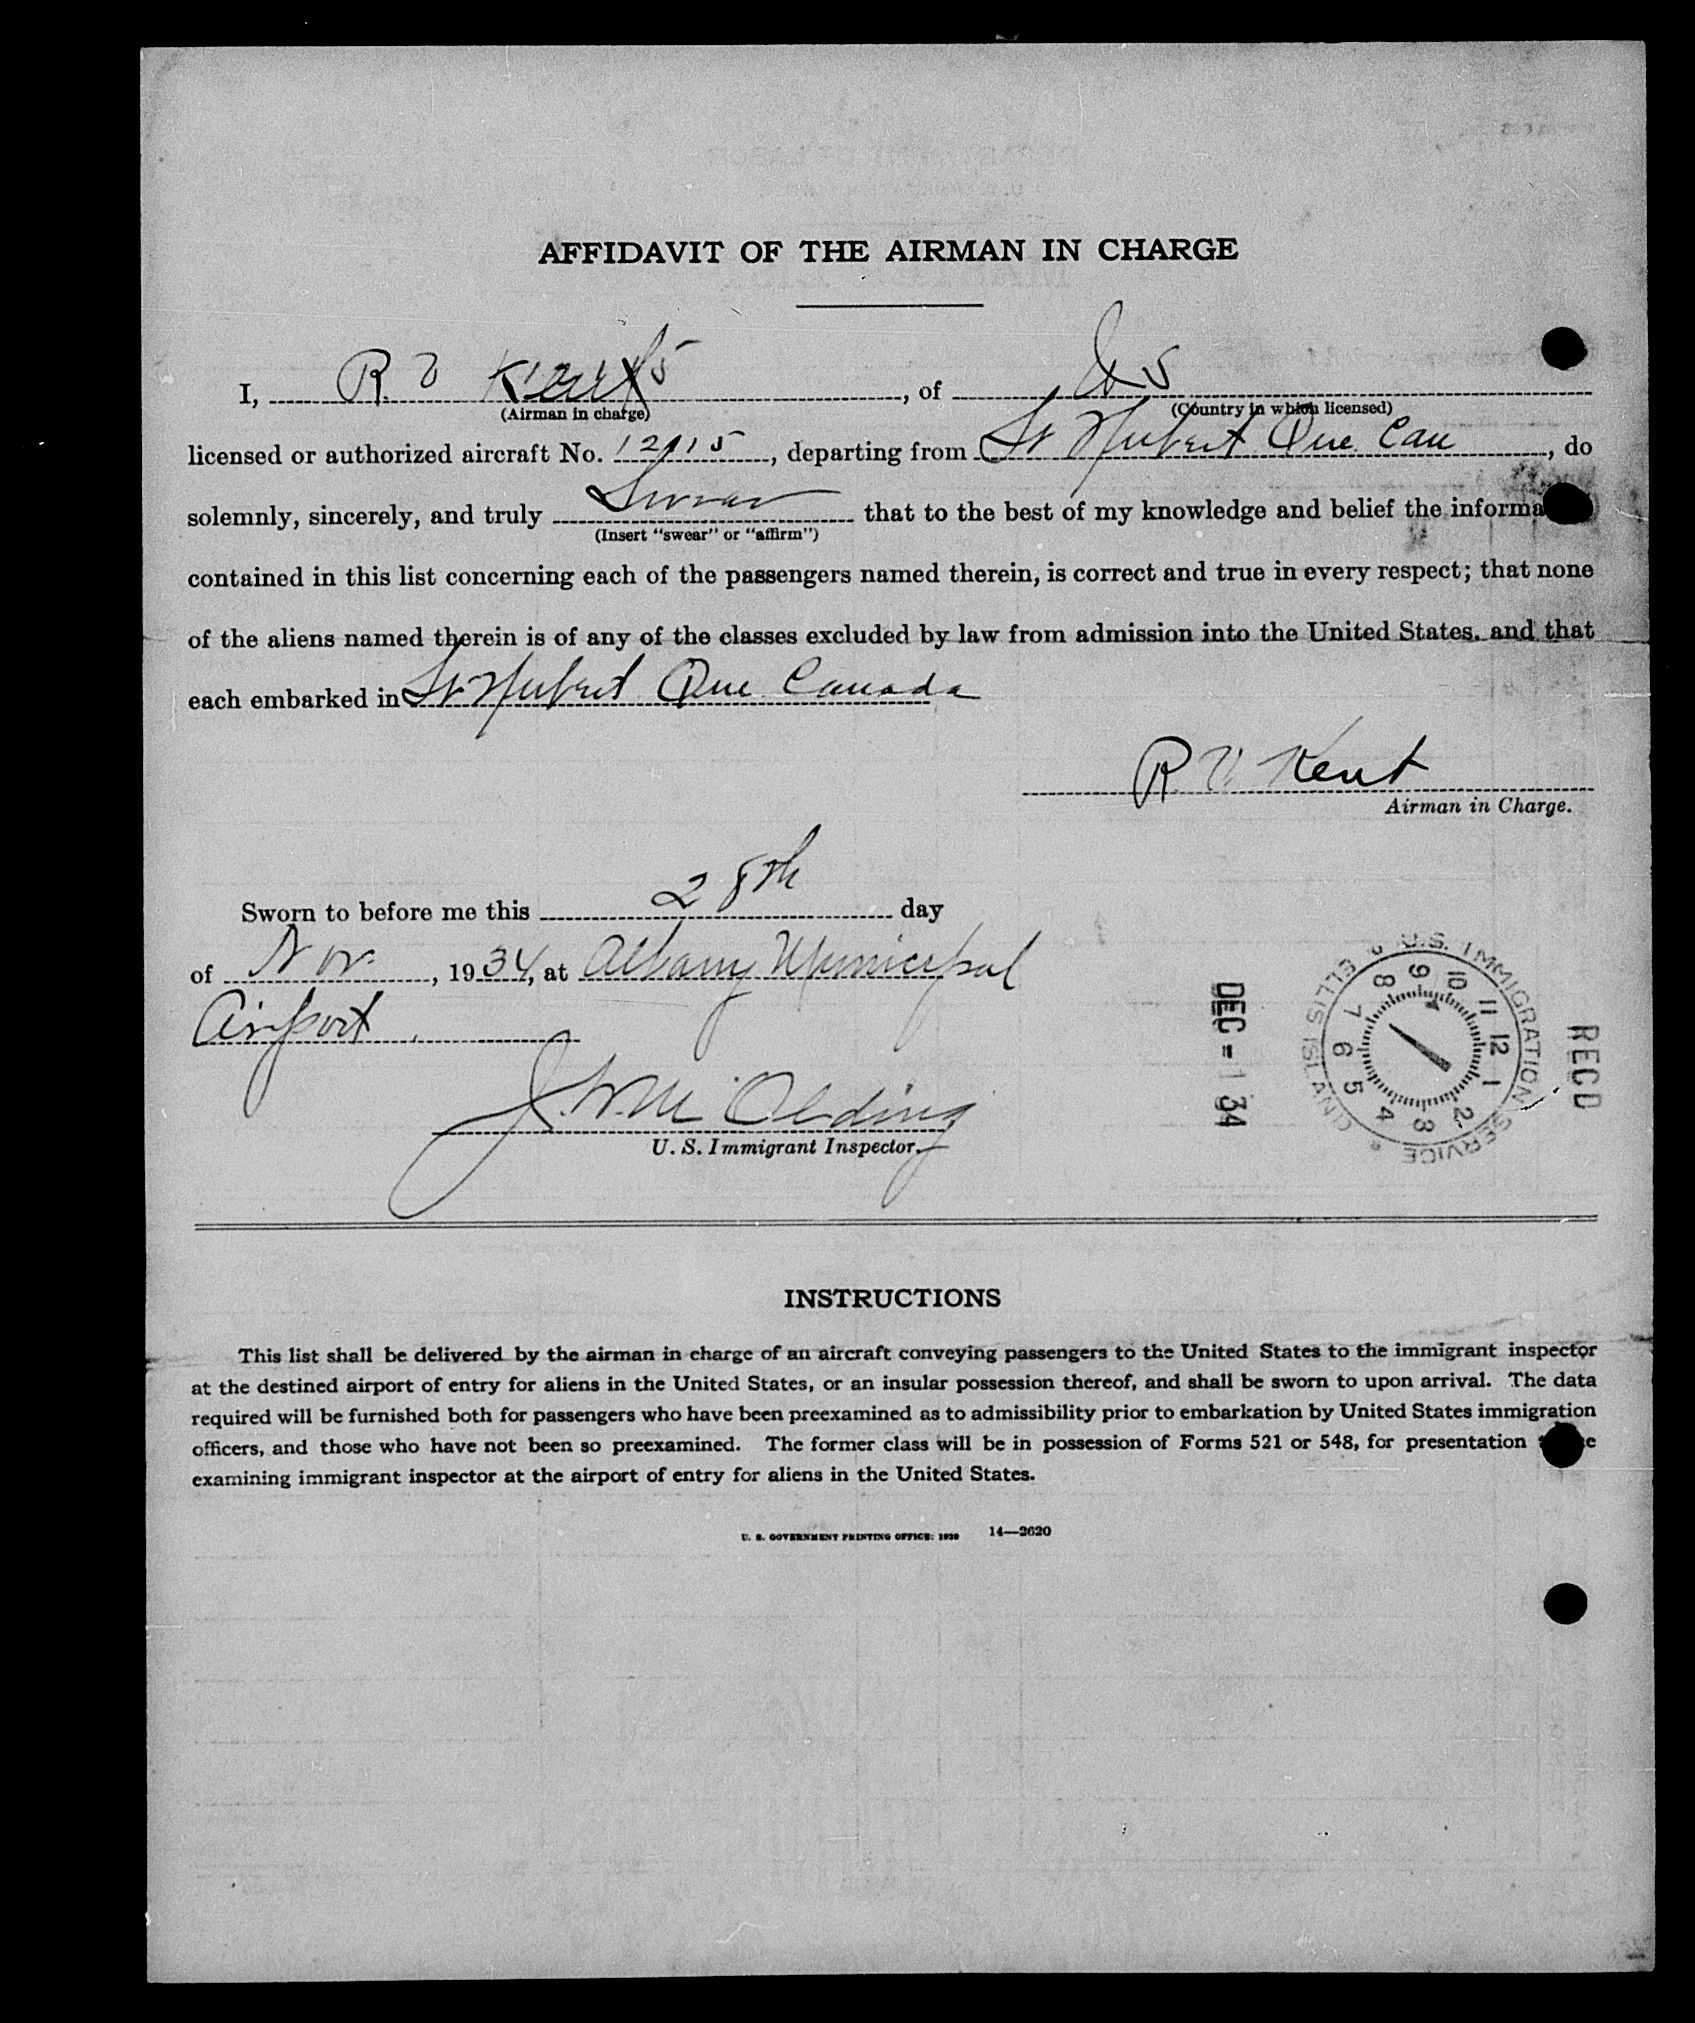 AFFIDAVIT OF THE AIRMAN IN CHARGE
I, R. V Kent, of U S
(Airman in charge) (Country in which licensed)
licensed or authorized aircraft No. 12115, departing from St Hubert Que. Can, do
solemnly, sincerely, and truly Swear that to the best of my knowledge and belief the informa
(Insert "swear" or "affirm")
contained in this list concerning each of the passengers named therein, is correct and true in every respect; that none
of the aliens named therein is of any of the classes excluded by law from admission into the United States, and that
each embarked in St Hubert Que Canada
R. V. Kent
Airman in Charge.
Sworn to before me this 28th day
of Nov., 1934, at Albany Municipal
Airport
J. W. Mc Olding
U. S. Immigrant Inspector.
REC'D
U.S. IMMIGRATION SERVICE * ELLIS ISLAND
1 2 3 4 5 6 7 8 9 10 11 12
DEC - 1 34
INSTRUCTIONS
This list shall be delivered by the airman in charge of an aircraft conveying passengers to the United States to the immigrant inspector
at the destined airport of entry for aliens in the United States, or an insular possession thereof, and shall be sworn to upon arrival. The data
required will be furnished both for passengers who have been preexamined as to admissibility prior to embarkation by United States immigration
officers, and those who have not been so preexamined. The former class will be in possession of Forms 521 or 548, for presentation
examining immigrant inspector at the airport of entry for aliens in the United States.
U. S. GOVERNMENT PRINTING OFFICE: 14—2620